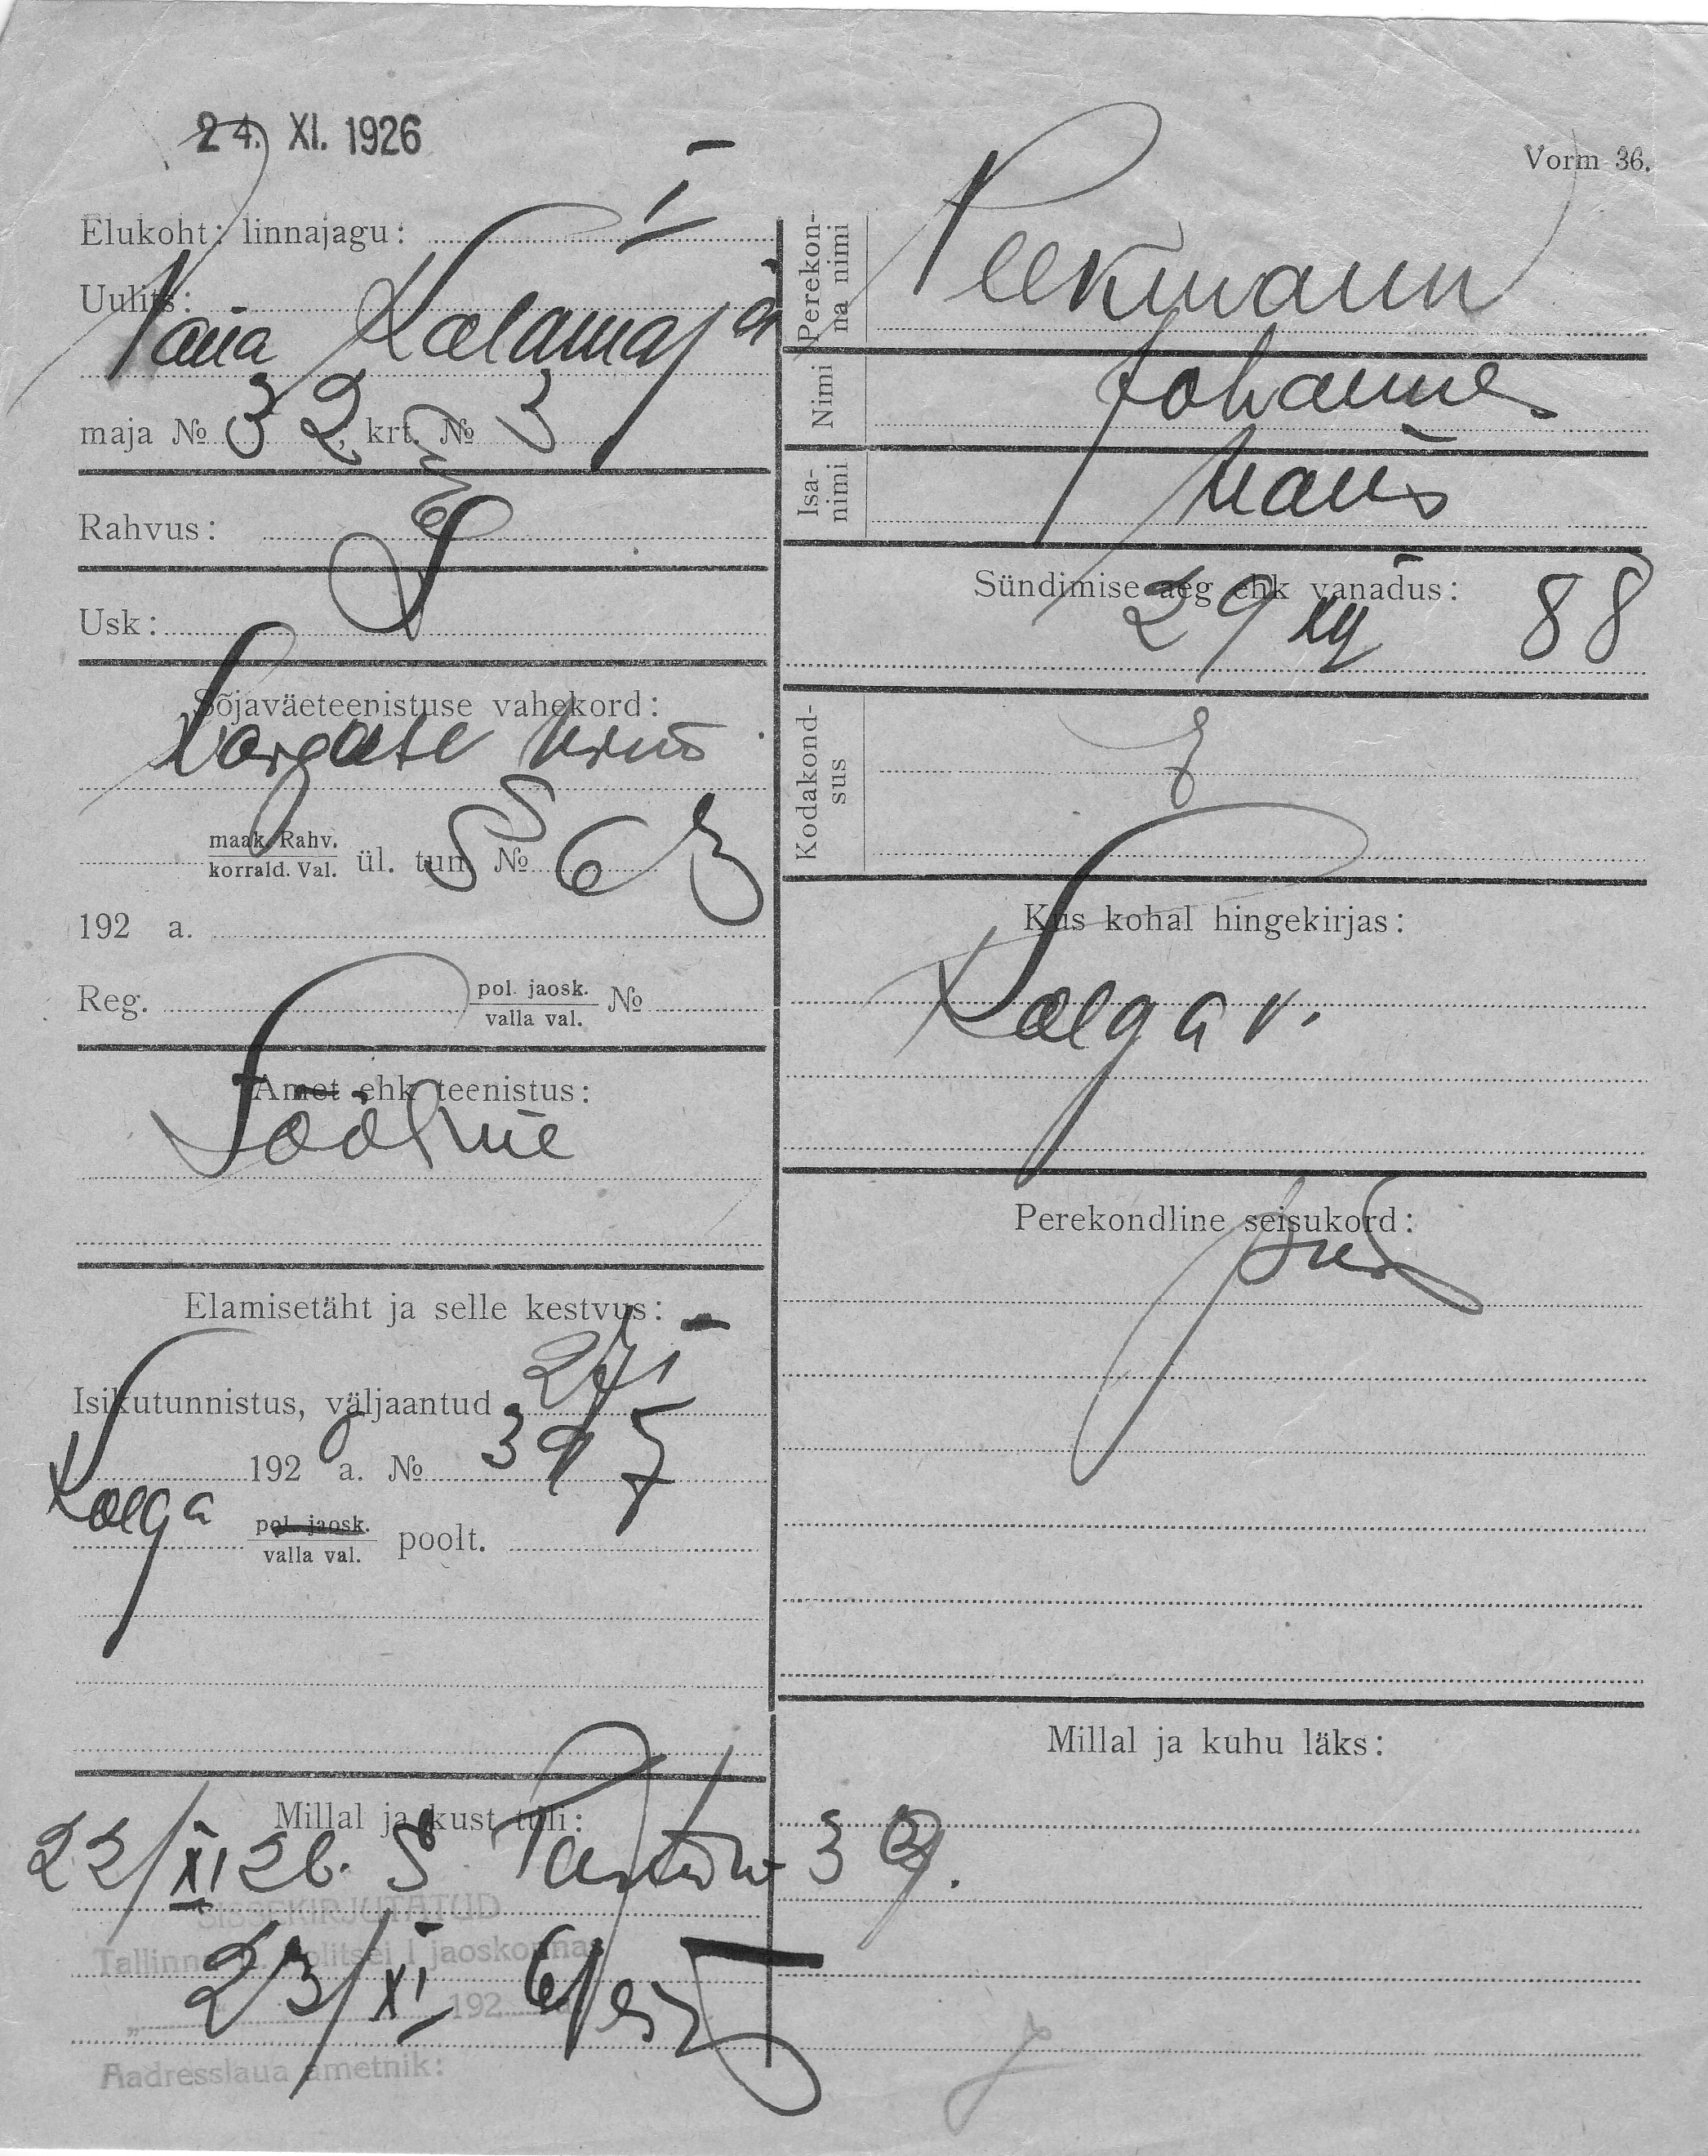 24. XI. 1926
Vorm 36.
Elukoht: linnajagu: I
Uulits:
Vana Kalamaja
maja № 32 krt. № 3
Rahvus: E
Usk:
Sõjaväeteenistuse vahekord:
maak. Rahv.
korrald. Val. ül. tun. № 563
192 a.
Reg. pol. jaosk.
valla val. №
Amet ehk teenistus:
Tööline
Elamisetäht ja selle kestvus:
Isikutunnistus, väljaantud
192 a. №
Kolga pol. jaosk.
valla val. poolt.
Millal ja kust tuli:
22/XI 26. S
SISSEKIRJUTATUD
Tallinna politsei I jaoskonnas
23/XI
192
Aadresslaua ametnik:
Perekonna nimi
Peekmann
Nimi
Johannes
Isanimi
Hans
Sündimise aeg ehk vanadus:
29 XII 88
Kodakondsus
E
Kus kohal hingekirjas:
Kolga v.
Perekondline seisukord:
Millal ja kuhu läks: